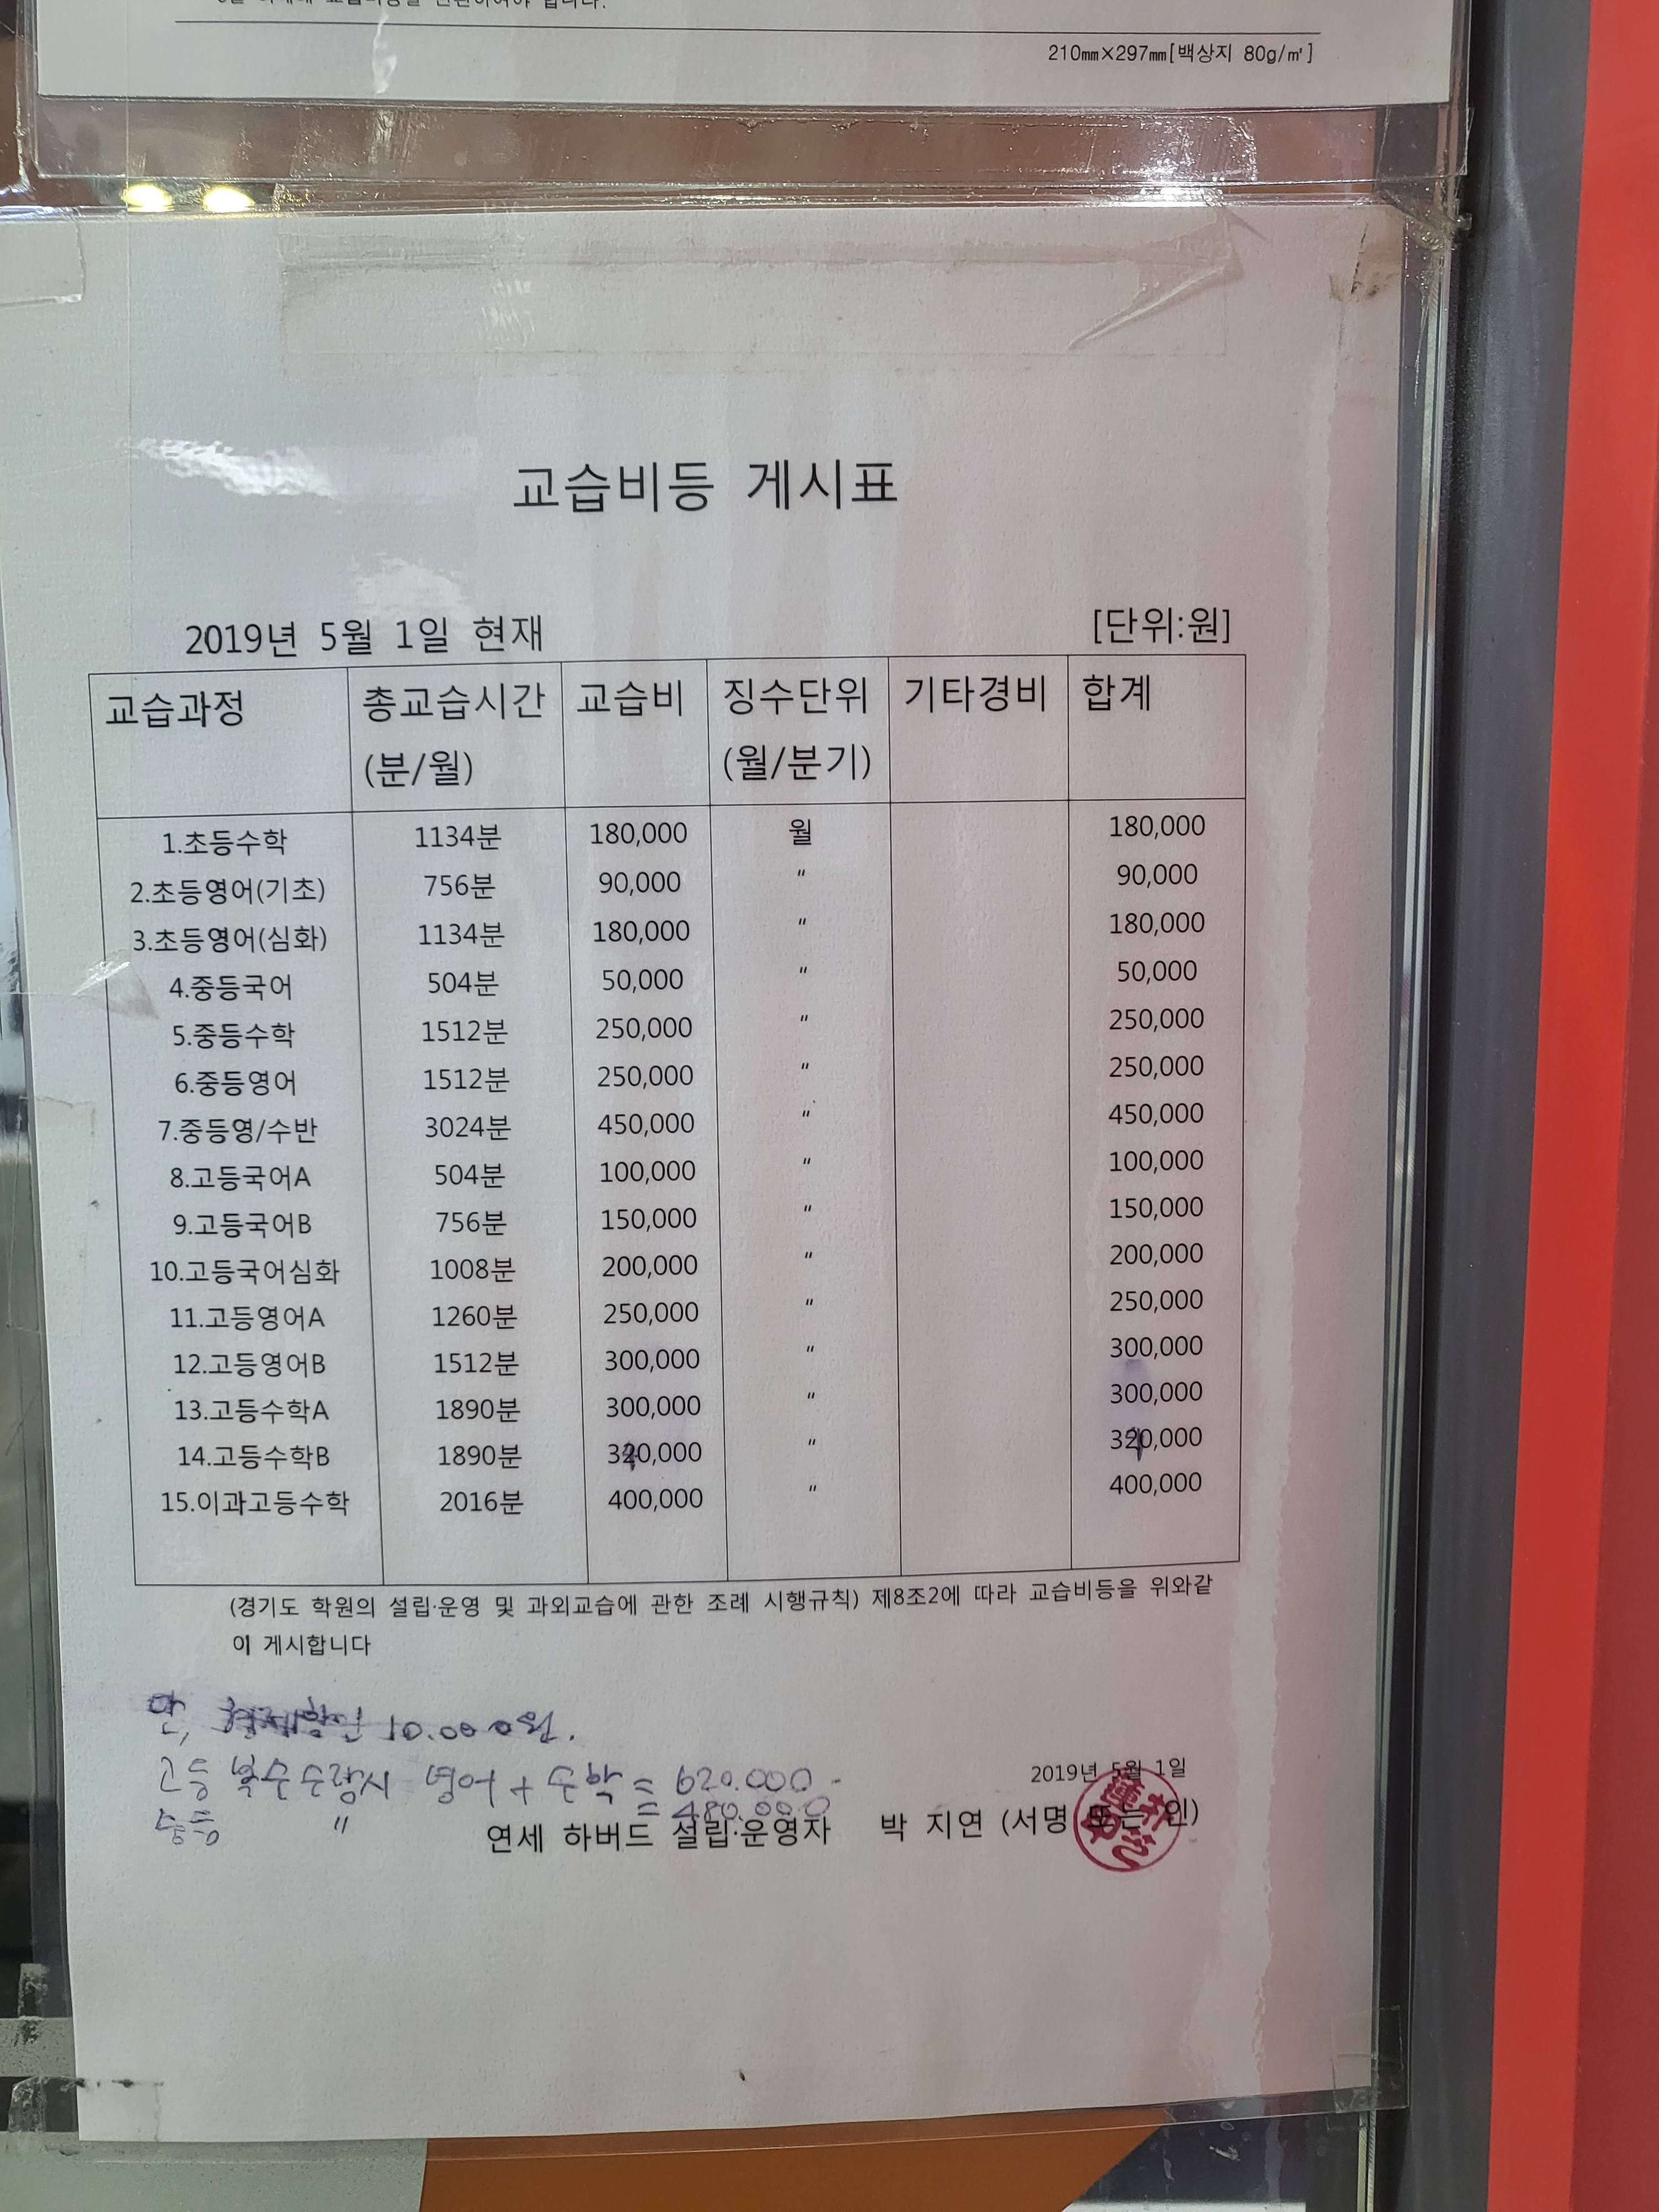 210㎜×297㎜[백상지 80g/㎡]
교습비등 게시표
2019년 5월 1일 현재 [단위:원]
교습과정 총교습시간 (분/월) 교습비 징수단위 (월/분기) 기타경비 합계
1.초등수학 1134분 180,000 월 180,000
2.초등영어(기초) 756분 90,000 " 90,000
3.초등영어(심화) 1134분 180,000 " 180,000
4.중등국어 504분 50,000 " 50,000
5.중등수학 1512분 250,000 " 250,000
6.중등영어 1512분 250,000 " 250,000
7.중등영/수반 3024분 450,000 " 450,000
8.고등국어A 504분 100,000 " 100,000
9.고등국어B 756분 150,000 " 150,000
10.고등국어심화 1008분 200,000 " 200,000
11.고등영어A 1260분 250,000 " 250,000
12.고등영어B 1512분 300,000 " 300,000
13.고등수학A 1890분 300,000 " 300,000
14.고등수학B 1890분 "
15.이과고등수학 2016분 400,000 " 400,000
(경기도 학원의 설립·운영 및 과외교습에 관한 조례 시행규칙) 제8조2에 따라 교습비등을 위와같
이 게시합니다
단, 형제할인 10.000원.
고등 복수수강시 영어 + 수학 = 620.000-
중등 " = 480.000
2019년 5월 1일
연세 하버드 설립·운영자 박 지연 (서명 또는 인)